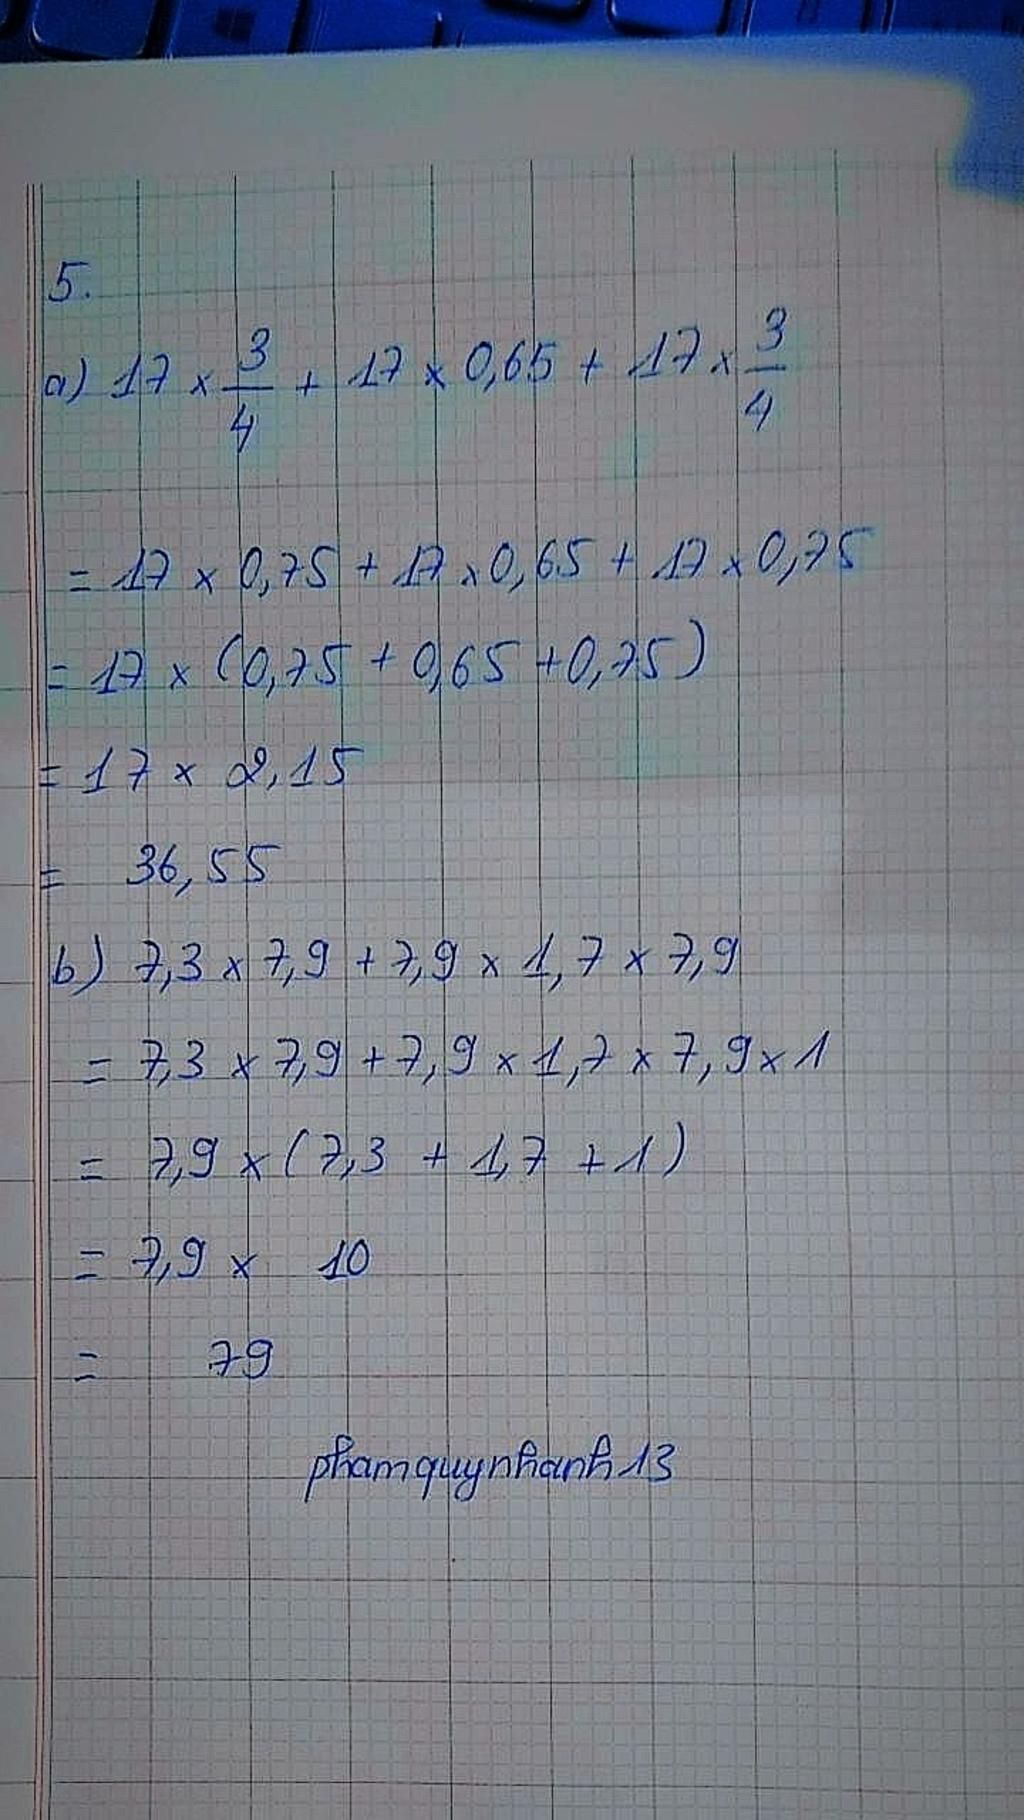 5.
a) 17 × 3/4 + 17 × 0,65 + 17 × 3/4
= 17 × 0,75 + 17 × 0,65 + 17 × 0,75
= 17 × (0,75 + 0,65 + 0,75)
= 17 × 2,15
= 36,55
b) 7,3 × 7,9 + 7,9 × 1,7 × 7,9
= 7,3 × 7,9 + 7,9 × 1,7 × 7,9 × 1
= 7,9 × (7,3 + 1,7 + 1)
= 7,9 × 10
= 79
phamquynhanh13